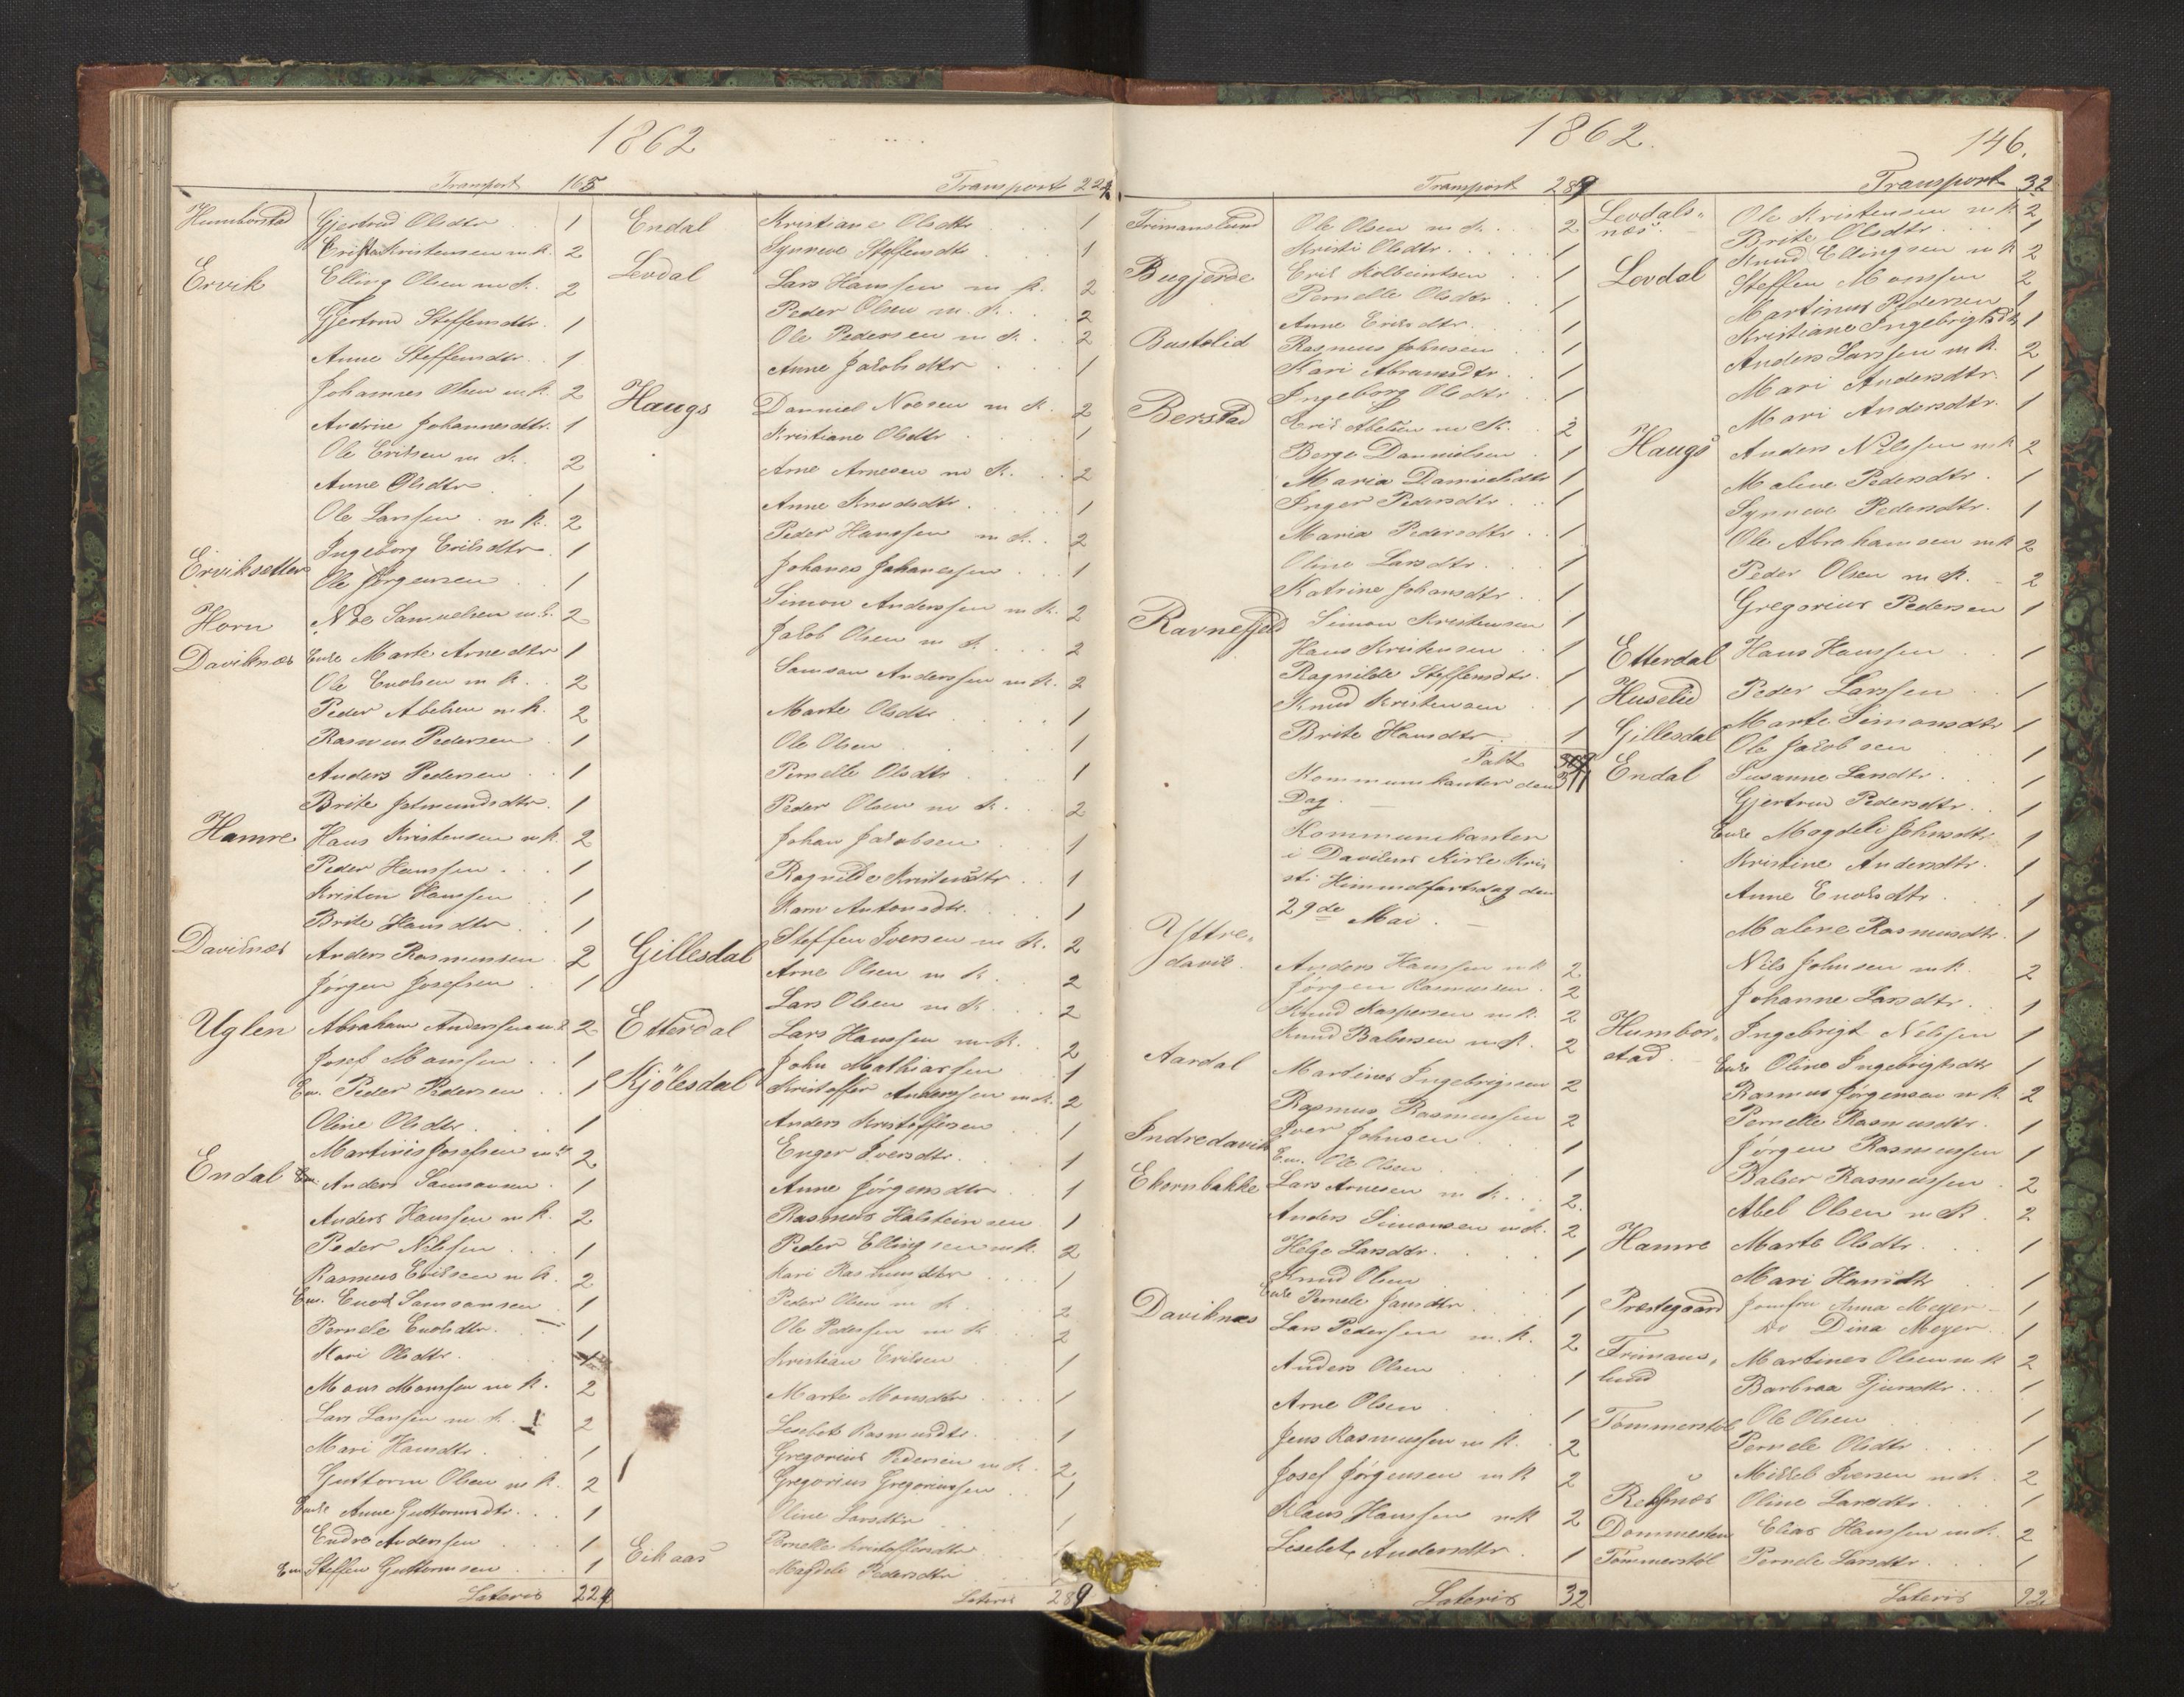 1862
Transport 165
Humborstad Gjertrud Olsdtr 1
Kristensen m K. 2
Ervik Elling Olsen m K. 2
Gjertrud Steffensdtr. 1
Anne Steffensdtr. 1
Johannes Olsen m K. 2
Andrine Johannesdtr. 1
Ole Eriksen m K. 2
Anne Olsdtr 1
Ole Larssen m K. 2
Ingeborg Eriksdtr 1
Erviksetter Ole Jørgensen 1
Horn Noe Samuelsen m K. 2
Daviknes Enke Marte Arnedtr 1
Ole Enoksen m K. 2
Peder Abelsen m K. 2
Rasmus Pedersen 1
Anders Pedersen 1
Brite Jetmundsdtr. 1
Hamre Hans Kristensen m K. 2
Peder Hanssen 1
Kristen Hanssen 1
Brite Hansdtr 1
Daviknes Anders Rasmussen 2
Jørgen Josefsen 1
Uglen Abraham Anderssen m K 2
Josef Monssen 1
Em. Peder Pedersen 1
Oline Olsdtr. 1
Martinus Josefsen m K 2
Endal Em. Anders Samsonsen 1
Anders Hanssen m K. 2
Peder Nilssen 1
Rasmus Eriksen m K. 2
Em. Enok Samsonsen 1
Pernele Enoksdtr. 1
Kari Olsdtr. 1
Mons Monssen m K. 2
Lars Larssen m K. 2
Mari Hansdtr. 1
Guttorm Olsen m K. 2
Enke Anne Guttormsdtr. 1
Endre Anderssen 1
Em Steffen Guttormsen 1
Lateris 224
Transport 224
Endal Kristiane Olsdtr 1
Synneve Steffensdtr 1
Levdal Lars Hanssen m K. 2
Peder Olsen m. K. 2
Ole Pedersen m K. 2
Anne Jakobsdtr 1
Haugs Danniel Noesen m K. 2
Kristiane Olsdtr 1
Arne Arnesen m K. 2
Anne Knudsdtr. 1
Peder Hanssen m K. 2
Johanes Johanessen 1
Simon Anderssen m K. 2
Jakob Olsen m K. 2
Samson Anderssen m K. 2
Marte Olsdtr 1
Ole Olsen 1
Pernelle Olsdtr 1
Peder Olsen m K. 2
Johan Jakobsen 1
Ragnilde Kristensdtr 1
Karn Antonsdtr. 1
Gillesdal Steffen Iversen m K. 2
Arne Olsen m K. 2
Lars Olsen m K. 2
Etterdal Lars Hanssen m K. 2
John Mathiassen 1
Kjölesdal Kristoffer Anderssen m K. 2
Anders Kristoffersen 1
Enger Iversdtr. 1
Anne Jørgensdtr 1
Rasmus Halsteinsen 1
Peder Ellingsen m K. 2
Kari Rasmusdtr 1
Peder Olsen m K. 2
Ole Pederssen m K. 2
Kristian Eriksen 1
Marte Monsdtr 1
Lesebet Rasmusdtr. 1
Gregorius Pedersen m K. 2
Gregorius Gregoriussen 1
Oline Larsdtr 1
Eikaas Pernelle Kristoffersdtr 1
Magdeli Pedersdtr
Lateris 289
1862. 146.
Transport 289
Frimanslund Ole Olsen m K. 2
Kristi Olsdtr. 1
Bugjerde Erik Kolbeintsen 1
Pernelle Olsdtr. 1
Anne Eriksdtr. 1
Bustelid Rasmus Johnsen 1
Kari Abramsdtr. 1
Ingeborg Olsdtr. 1
Berstad Erik Abelsen m K. 2
Berge Dannielsen 1
Maria Dannielsdtr 1
Inger Pedersdtr. 1
Maria Pedersdtr. 1
Oline Larsdtr. 1
Katrine Johansdtr. 1
Ravnefjeld Simon Kristensen 1
Hans Kristensen 1
Ragnilde Steffensdtr. 1
Knud Kristensen 1
Brite Hansdtr 1
Talt 311
Kommunikanter den
Dag.
Kommunikanter
i Davikens Kirke Kri
sti Himmelfartsdag den
29de Mai.
Yttre-
davik. Anders Hanssen m K 2
Jørgen Rasmussen 2
Knud Kaspersen m K. 2
Knud Balsersen m K. 2
Aardal Martines Ingebrigtsen 2
Rasmus Rasmussen 2
Indredavik Iver Johnsen 1
Em. Ole Olsen 1
Ekornbakke Lars Arnesen m K. 2
Anders Simonsen m K. 2
Helge Larsdtr. 1
Knud Olsen 1
Enke Pernele Jansdtr. 1
Daviknes Lars Pederssen m. K. 2
Anders Olsen 1
Arne Olsen 1
Jens Rasmussen m K. 2
Josef Jørgensen m K 2
Klaus Hanssen m K 2
Lesebet Andersdtr. 1
Lateris 32
Transport 32
Levdals-
nes. Ole Kristensen m K 2
Brite Olsdtr 1
Knud Ellingsen m K 2
Levdal Steffen Monssen 2
Martinus Pedersen 1
Kristiane Ingebrigtsdtr 1
Anders Larssen m K. 2
Mari Andersdtr. 1
Mari Andersdtr. 1
Haugs Anders Nilssen m K 2
Malene Pedersdtr. 1
Synneve Pedersdtr. 1
Ole Abrahamsen m K 2
Peder Olsen m K. 2
Gregorius Pedersen 1
Etterdal Hans Hanssen 1
Huselid Peder Larssen 1
Gillesdal Marte Simonsdtr 1
Ole Jakobsen 1
Endal Susanne Larsdtr. 1
Gjertrud Pedersdtr. 1
Enke Magdeli Johnsdtr. 1
Kristine Andersdtr. 1
Anne Enoksdtr 1
Malene Rasmusdtr. 1
Nils Johnsen m K. 2
Johanne Larsdtr. 1
Humbor-
stad. Ingebrigt Nilssen 1
Enke Oline Ingebrigtsdtr 1
Rasmus Jørgensen m K. 2
Pernelle Rasmusdtr. 1
Jørgen Rasmussen 1
Balser Rasmussen 2
Abel Olsen m K 2
Hamre Marte Olsdtr. 1
Mari Hansdtr 1
Præstegaard Jomfru Anna Meyer 1
do Dina Meyer 1
Frimans-
lund Martines Olsen m K 2
Barbraa Gjursdtr. 1
Tommerstøl Ole Olsen 1
Pernele Olsdtr. 1
Mikkel Iversen m K. 2
Oline Larsdtr. 1
Dommesten Elias Hanssen m K. 2
Tømmerstøl Pernele Larsdtr. 1
Lateris 92